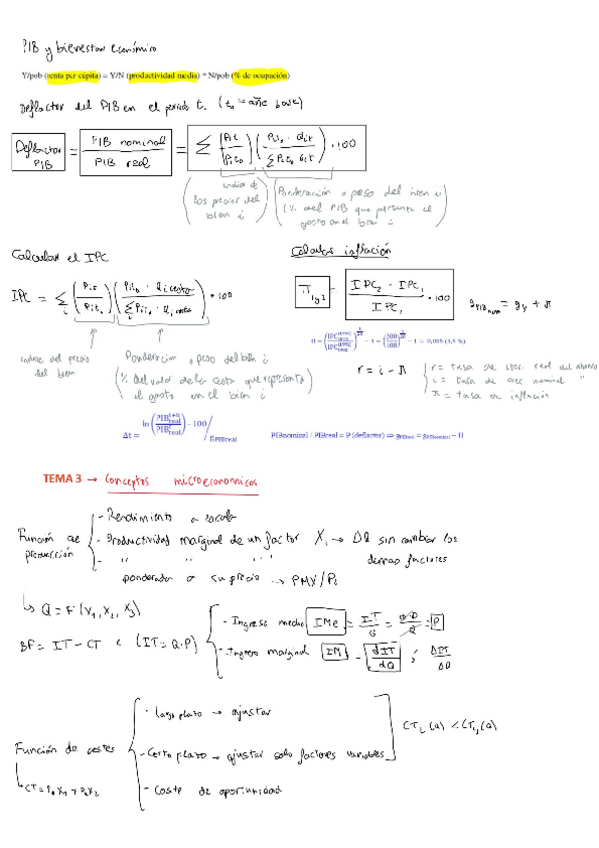 PIB y bienestar económico
Y/pob (renta per cápita) = Y/N (productividad media) * N/pob (% de ocupación)
Deflactor del PIB en el periodo t. (t₀ = año base)
Deflactor PIB = PIB nominal / PIB real = Σ (Pit / Pit₀) (Pit₀ · Qit / Σ Pit₀ Qit) · 100
índice de los precios del bien i
Ponderación o peso del bien i
(% del PIB que representa el gasto en el bien i)
Calcular el IPC
Calcular inflación
IPC = Σi (Pit / Pit₀) (Pit₀ · Qi cesta / Σi Pit₀ · Qi cesta) · 100
π 1y2 = IPC₂ - IPC₁ / IPC₁ · 100
g PIB nom = gy + π
índice del precio del bien
Ponderación o peso del bien i
(% del valor de la cesta que representa el gasto en el bien i)
r = i - π
r = tasa de crec. real del ahorro
i = tasa de crec nominal "
π = tasa de inflación
Δt = ln (PIB real t+n / PIB real t) · 100 / g PIBreal
PIBnominal / PIBreal = P (deflactor) ⇒ g PIBreal = g PIBnominal - Π
TEMA 3 → Conceptos microeconomicos
Función de producción
- Rendimiento a escala
- Productividad marginal de un factor Xi → ΔQ sin cambiar los demas factores
- " " " "
ponderada a su precio → PMX/Pi
↳ Q = F (X₁, X₂, X₃)
BF = IT - CT (IT = Q·P)
- Ingreso medio IMe = IT/Q = Q·P/Q = P
- Ingreso marginal IM = dIT/dQ ; ΔIT/ΔQ
Función de costes
- largo plazo → ajustar
- Corto plazo → ajustar solo factores variables
CT₂ (Q) < CT₁ (Q)
- Coste de oportunidad
↳ CT = P₁X₁ + P₂X₂